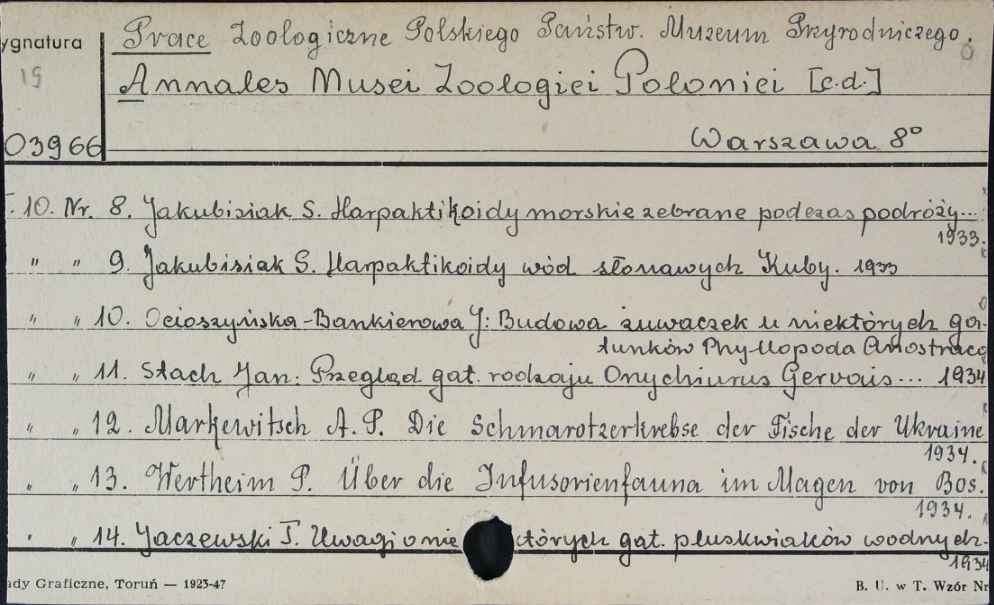 ygnatura
Prace Zoologiczne Polskiego Państw. Muzeum Przyrodniczego.
19
Annales Musei Zoologici Polonici [c.d.]
03966
Warszawa 8°
. 10. Nr. 8. Jakubisiak S. Harpaktikoidy morskie zebrane podczas podróży...
1933.
" " 9. Jakubisiak S. Harpaktikoidy wód słonawych Kuby. 1933
" " 10. Ocioszyńska-Bankierowa J: Budowa żuwaczek u niektórych ga-
tunków Phyllopoda Anostraca
" " 11. Stach Jan: Przegląd gat. rodzaju Onychiurus Gervais... 1934
" " 12. Markewitsch A. P. Die Schmarotzerkrebse der Fische der Ukraine
1934.
" " 13. Wertheim P. Über die Infusorienfauna im Magen von Bos.
1934.
" " 14. Jaczewski T. Uwagi o nie któryc gat. pluskwiaków wodnych.
1934
ady Graficzne, Toruń — 1923-47
B. U. w T. Wzór Nr